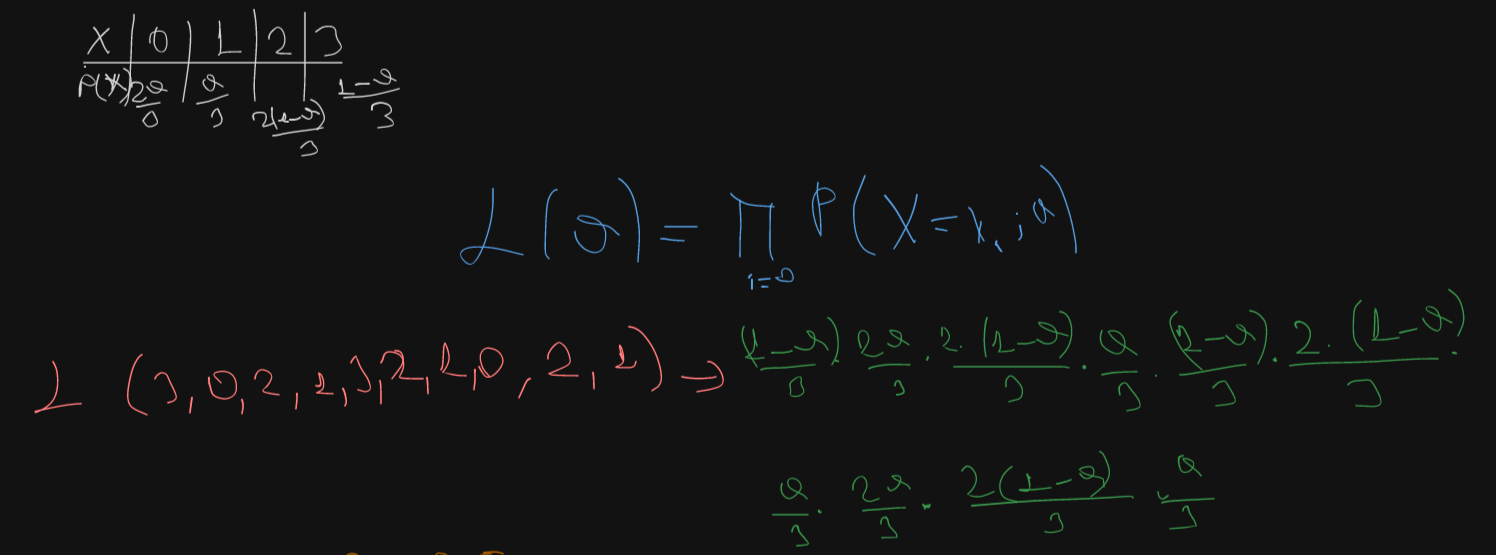 X | 0 | 1 | 2 | 3
P(X) | 2θ/3 | θ/3 | 2(1-θ)/3 | 1-θ/3
L(θ) = ∏ i=0 P(X=xᵢ;θ)
L (3,0,2,1,3,2,1,0,2,1) → (1-θ)/3 · 2θ/3 · 2·(1-θ)/3 · θ/3 · (1-θ)/3 · 2·(1-θ)/3 ·
θ/3 · 2θ/3 · 2(1-θ)/3 · θ/3